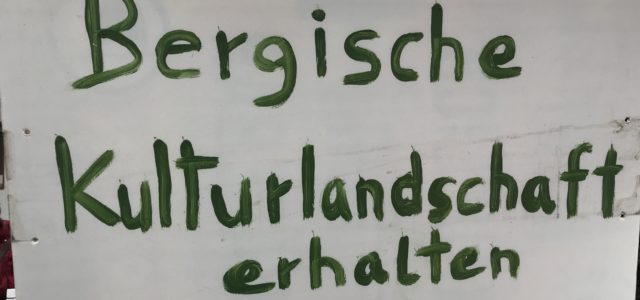 Bergische
Kulturlandschaft
erhalten